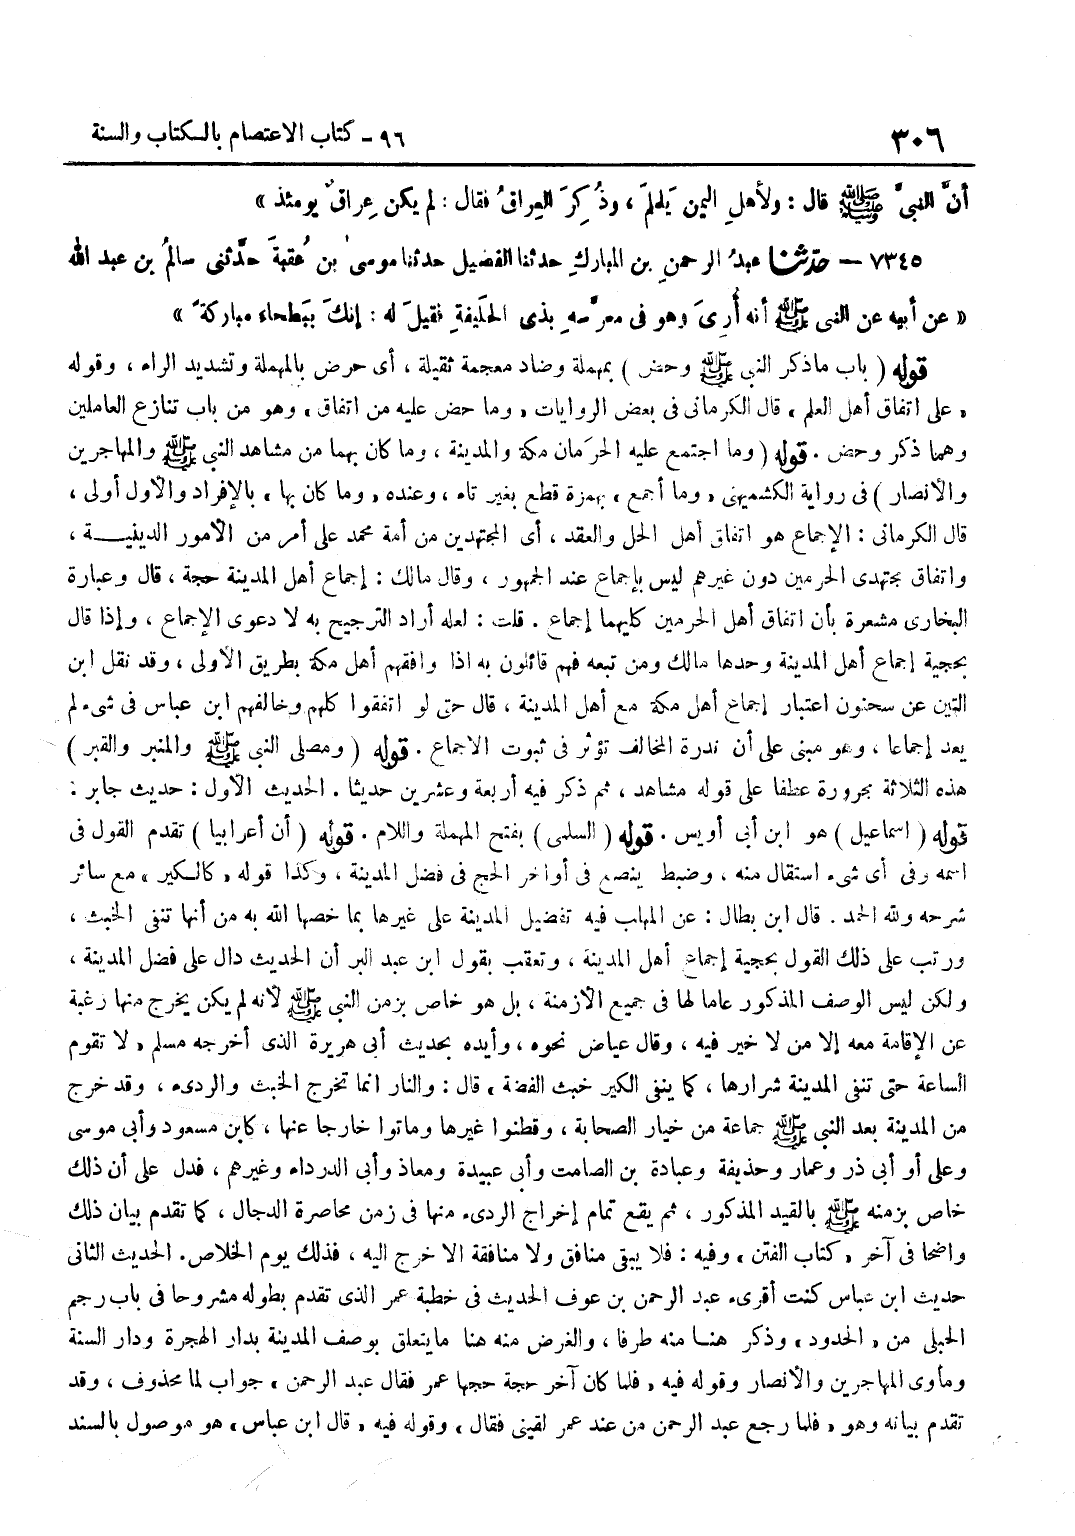 ٣٠٦
٩٦ - كتاب الاعتصام بالكتاب والسنة
أنَّ النبىَّ ﷺ قال : ولأهلِ اليمن يَلملَم ، وذُكِرَ العِراقُ فقال : لم يكن عِراقٌ يومئذ »
٧٣٤٥ – حدّثنا عبدُ الرحمنِ بن المباركِ حدثنا الفضيل حدثنا موسىٰ بن عُقبةَ حدَّثنى سالمُ بن عبد الله
« عن أبيه عن النبى ﷺ أنه أُرِىَ وهو فى معرَّسهِ بذى الحلَيفةِ فقيلَ له : إنكَ ببَطحاء مباركةَ »
قوله ( باب ماذكر النبى ﷺ وحض ) بمهملة وضاد معجمة ثقيلة ، أى حرض بالمهملة وتشديد الراء ، وقوله
« على اتفاق أهل العلم » قال الكرمانى فى بعض الروايات « وما حض عليه من اتفاق » وهو من باب تنازع العاملين
وهما ذكر وحض . قوله ( وما اجتمع عليه الحرَمان مكة والمدينة ، وما كان بهما من مشاهد النبى ﷺ والمهاجرين
والأنصار ) فى رواية الكشميهنى « وما أجمع » بهمزة قطع بغير تاء ، وعنده « وما كان بها » بالإفراد والأول أولى ،
قال الكرمانى : الإجماع هو اتفاق أهل الحل والعقد ، أى المجتهدين من أمة محمد على أمر من الأمور الدينيـــة ،
واتفاق مجتهدى الحرمين دون غيرهم ليس بإجماع عند الجمهور ، وقال مالك : إجماع أهل المدينة حجة ، قال وعبارة
البخارى مشعرة بأن اتفاق أهل الحرمين كليهما إجماع . قلت : لعله أراد الترجيح به لا دعوى الإجماع ، وإذا قال
بحجية إجماع أهل المدينة وحدها مالك ومن تبعه فهم قائلون به اذا وافقهم أهل مكة بطريق الأولى ، وقد نقل ابن
التين عن سحنون اعتبار إجماع أهل مكة مع أهل المدينة ، قال حتى لو اتفقوا كلهم وخالفهم ابن عباس فى شىء لم
يعد إجماعا ، وهو مبنى على أن ندرة المخالف تؤثر فى ثبوت الاجماع . قوله ( ومصلى النبى ﷺ والمنبر والقبر )
هذه الثلاثة مجرورة عطفا على قوله مشاهد ، ثم ذكر فيه أربعة وعشرين حديثا . الحديث الأول : حديث جابر :
قوله ( اسماعيل ) هو ابن أبى أويس . قوله ( السلمى ) بفتح المهملة واللام . قوله ( أن أعرابيا ) تقدم القول فى
اسمه وفى أى شىء استقال منه ، وضبط ينصع فى أواخر الحج فى فضل المدينة ، وكذا قوله « كالكير » مع سائر
شرحه ولله الحمد . قال ابن بطال : عن المهلب فيه تفضيل المدينة على غيرها بما خصها الله به من أنها تنفى الخبث ،
ورتب على ذلك القول بحجية إجماع أهل المدينة ، وتعقب بقول ابن عبد البر أن الحديث دال على فضل المدينة ،
ولكن ليس الوصف المذكور عاما لها فى جميع الأزمنة ، بل هو خاص بزمن النبى ﷺ لأنه لم يكن يخرج منها رغبة
عن الإقامة معه إلا من لا خير فيه ، وقال عياض نحوه ، وأيده بحديث أبى هريرة الذى أخرجه مسلم « لا تقوم
الساعة حتى تنفى المدينة شرارها ، كما ينفى الكير خبث الفضة » قال : والنار انما تخرج الخبث والردىء ، وقد خرج
من المدينة بعد النبى ﷺ جماعة من خيار الصحابة ، وقطنوا غيرها وماتوا خارجا عنها ، كابن مسعود وأبى موسى
وعلى أو أبى ذر وعمار وحذيفة وعبادة بن الصامت وأبى عبيدة ومعاذ وأبى الدرداء وغيرهم ، فدل على أن ذلك
خاص بزمنه ﷺ بالقيد المذكور ، ثم يقع تمام إخراج الردىء منها فى زمن محاصرة الدجال ، كما تقدم بيان ذلك
واضحا فى آخر « كتاب الفتن » وفيه : فلا يبقى منافق ولا منافقة الا خرج اليه ، فذلك يوم الخلاص . الحديث الثانى
حديث ابن عباس كنت أقرىء عبد الرحمن بن عوف الحديث فى خطبة عمر الذى تقدم بطوله مشروحا فى باب رجم
الحبلى من « الحدود » وذكر هنـا منه طرفا ، والغرض منه هنا مايتعلق بوصف المدينة بدار الهجرة ودار السنة
ومأوى المهاجرين والأنصار وقوله فيه « فلما كان آخر حجة حجها عمر فقال عبد الرحمن » جواب لما محذوف ، وقد
تقدم بيانه وهو « فلما رجع عبد الرحمن من عند عمر لقينى فقال » وقوله فيه « قال ابن عباس » هو موصول بالسند